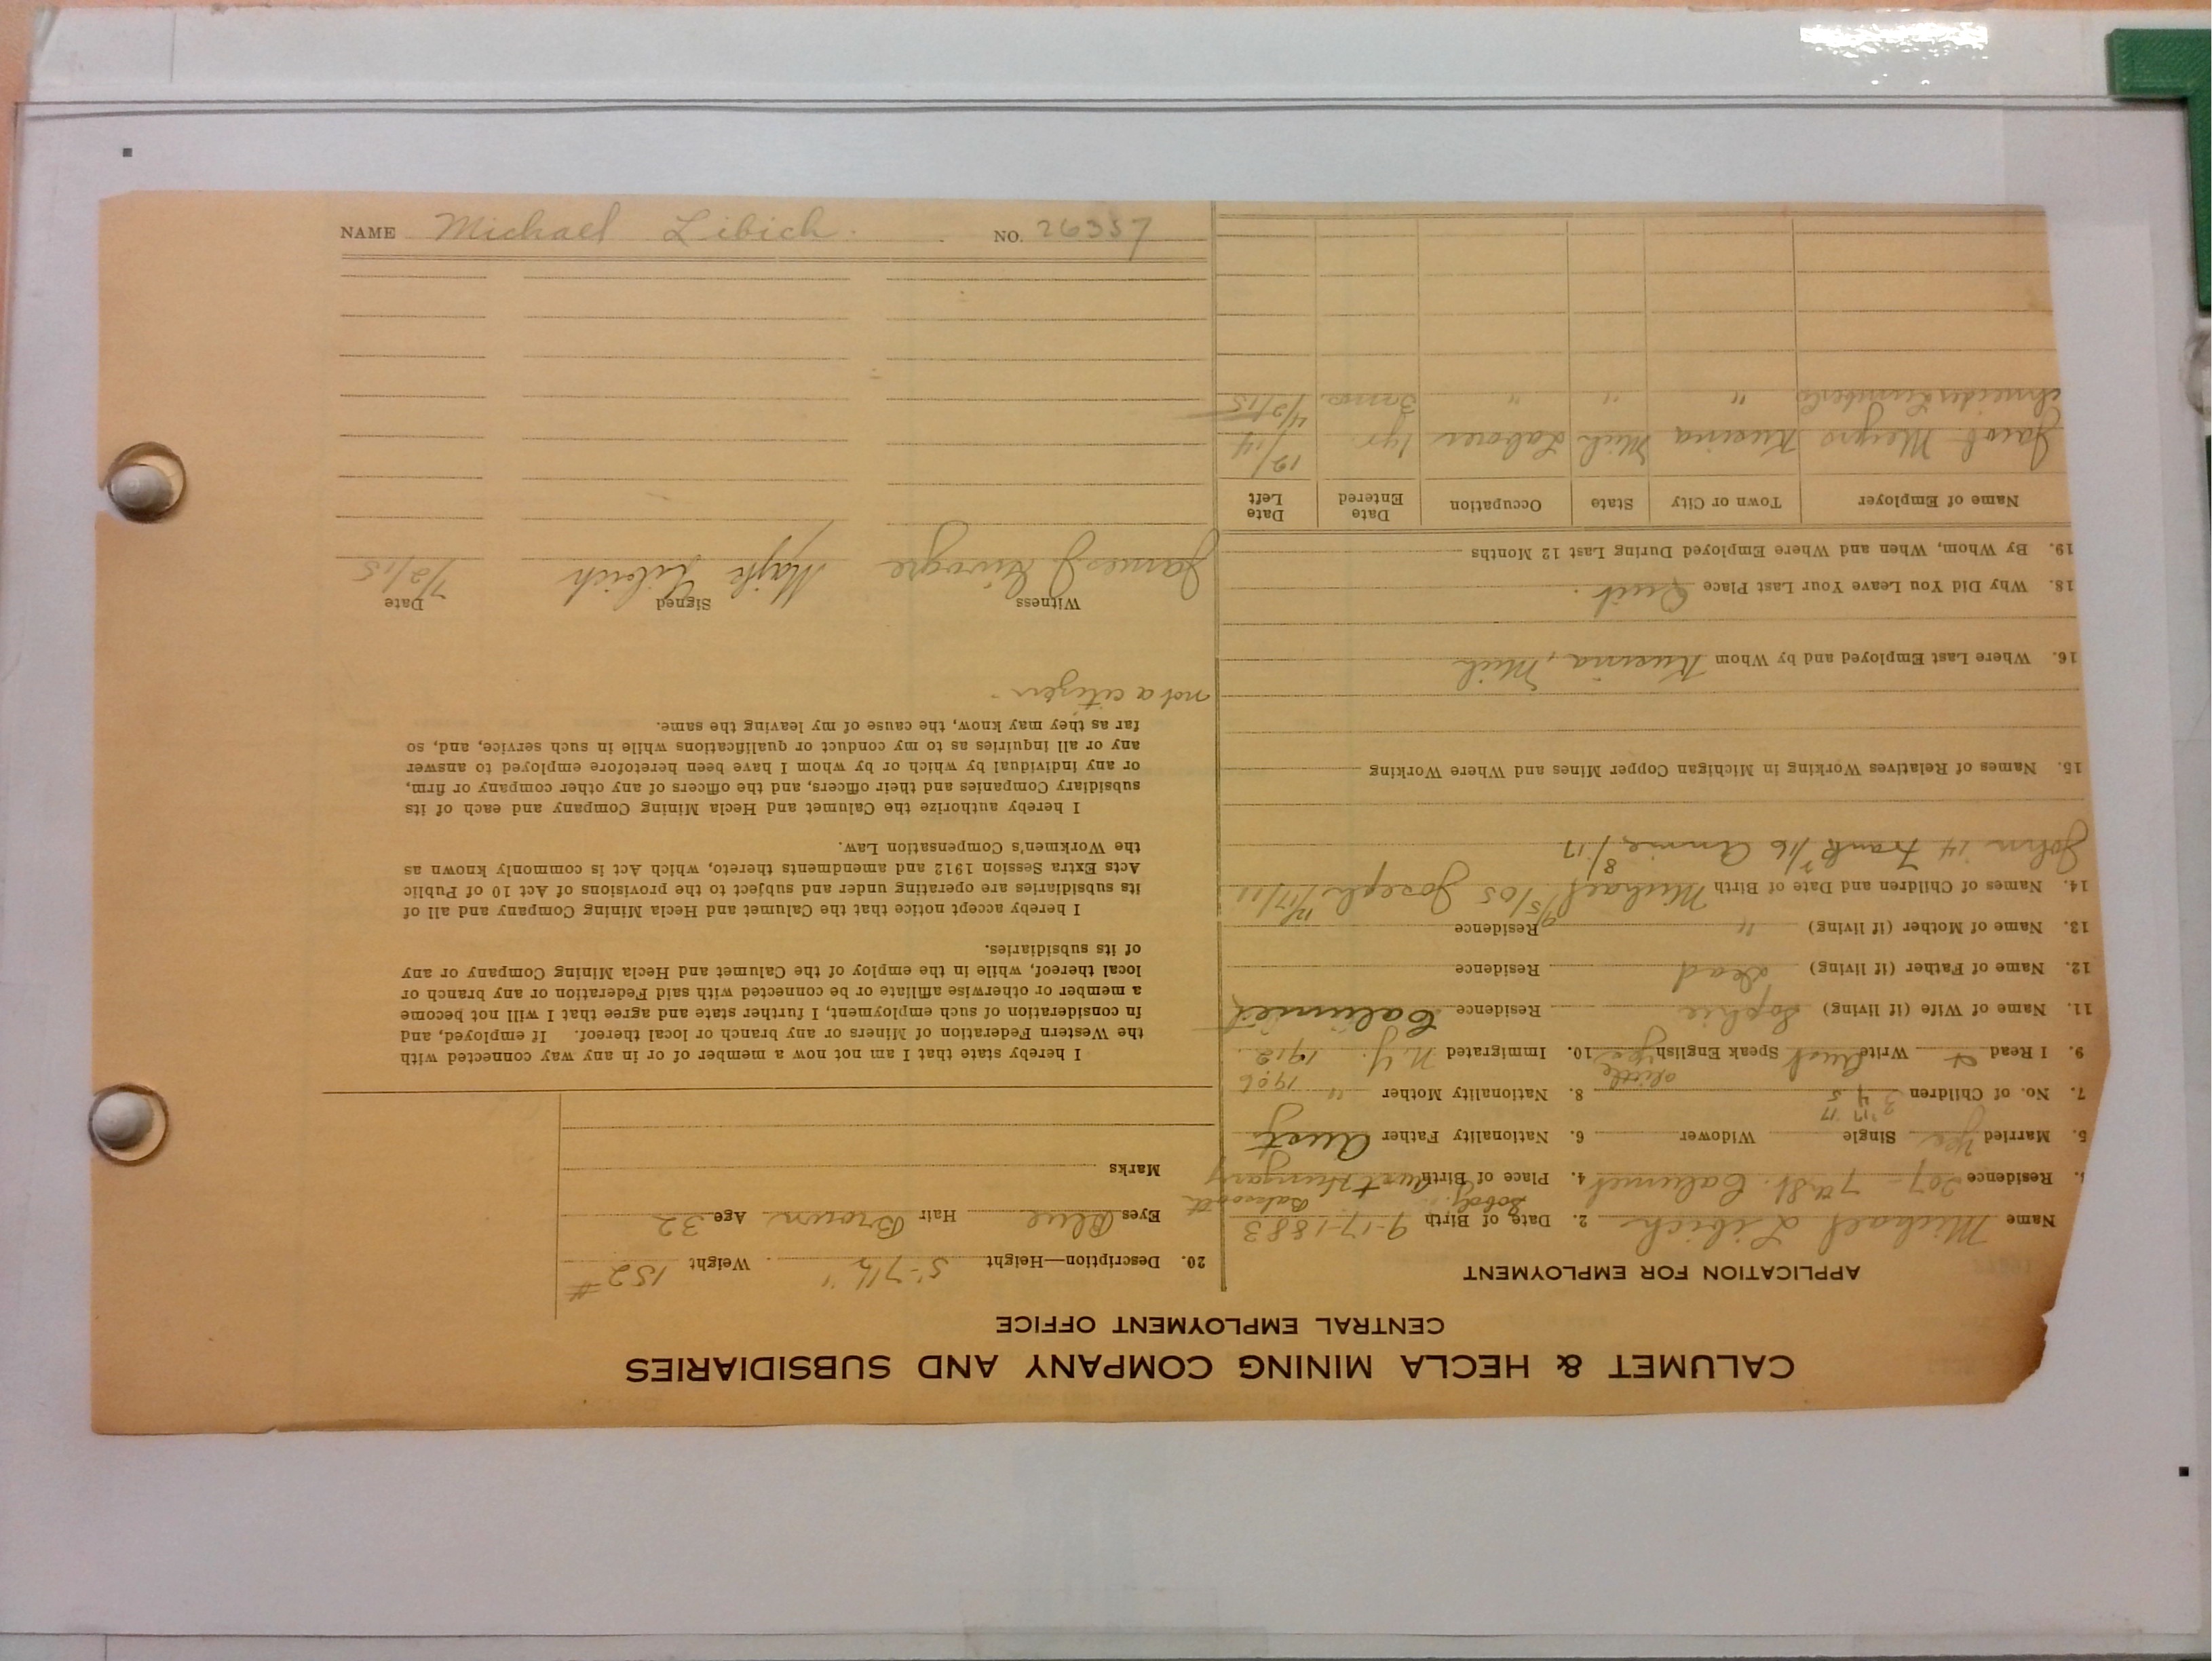 CALUMET & HECLA MINING COMPANY AND SUBSIDIARIES
CENTRAL EMPLOYMENT OFFICE
APPLICATION FOR EMPLOYMENT
Name Michael Libich 2. Date of Birth 9-17-1883
Residence 207- 7th St. Calumet 4. Place of Birth Aust Hungary
5. Married Yes Single Widower 6. Nationality Father Aust
7. No. of Children 3 4 5 8. Nationality Mother "
1906
9. I Read Write Aust Speak English little 10. Immigrated N.Y. 1912
11. Name of Wife (if living) Sophie Residence Calumet
12. Name of Father (if living) Dead Residence
13. Name of Mother (if living) " Residence
14. Names of Children and Date of Birth Michael 9/5/05 Joseph 12/17/11
John 14 Frank 7/16 Annie 8/17
15. Names of Relatives Working in Michigan Copper Mines and Where Working
16. Where Last Employed and by Whom Mich
18. Why Did You Leave Your Last Place Quit.
19. By Whom, When and Where Employed During Last 12 Months
Name of Employer Town or City State Occupation Date Entered Date Left
Jacob Mich Laborer 1 yr. 12/14
" " " 3 mos. 4/2/15
20. Description—Height 5'-7 1/2" Weight 152 #
Eyes Blue Hair Brown Age 32
Marks
I hereby state that I am not now a member of or in any way connected with
the Western Federation of Miners or any branch or local thereof. If employed, and
in consideration of such employment, I further state and agree that I will not become
a member or otherwise affiliate or be connected with said Federation or any branch or
local thereof, while in the employ of the Calumet and Hecla Mining Company or any
of its subsidiaries.
I hereby accept notice that the Calumet and Hecla Mining Company and all of
its subsidiaries are operating under and subject to the provisions of Act 10 of Public
Acts Extra Session 1912 and amendments thereto, which Act is commonly known as
the Workmen's Compensation Law.
I hereby authorize the Calumet and Hecla Mining Company and each of its
subsidiary Companies and their officers, and the officers of any other company or firm,
or any individual by which or by whom I have been heretofore employed to answer
any or all inquiries as to my conduct or qualifications while in such service, and, so
far as they may know, the cause of my leaving the same.
not a citizen.
Witness Signed Date
James J Majk Libich 7/2/15
NAME Michael Libich. NO. 26357